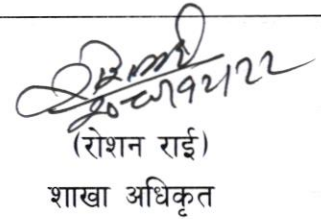 (रोशन राई)
शाखा अधिकृत